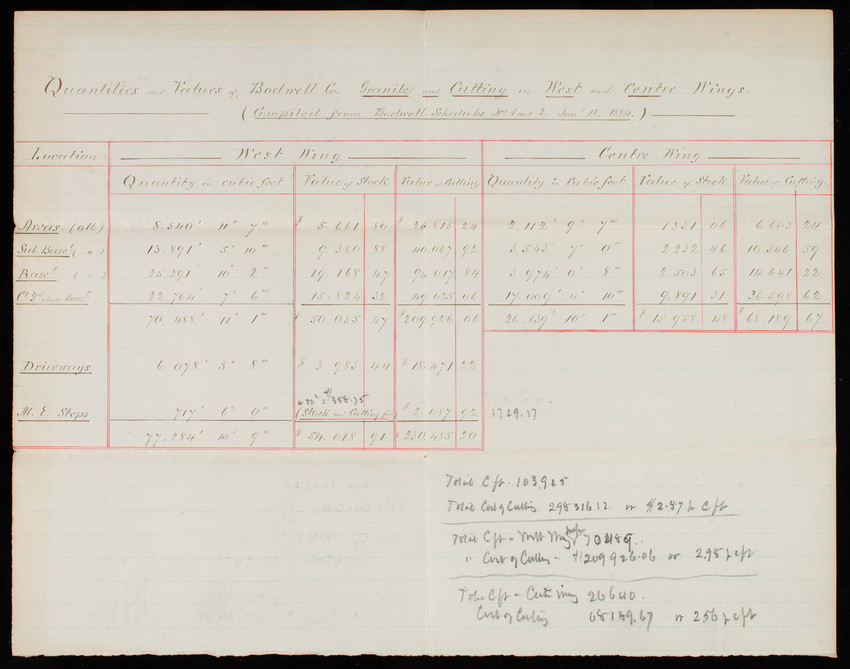 Quantities and Values of Bodwell Co. Granite and Cutting in West and Centre Wings.
(Compiled from Bodwell Schedules, Nos 1 and 2 Jany 18, 1884.)
Location West Wing Centre Wing
Quantity in cubic feet Value of Stock Value of Cutting Quantity in Cubic feet Value of Stock Value of Cutting
Areas (all) 8.540' 11" 7''' $ 5.661 80 $ 26.815 24 2.112' 9" 7''' 1331 06 6.603 24
Sub Baset ( " ) 13.891' 5" 10''' 9.380 88 40.067 92 3.543' 7" 0''' 2.232 46 10.346 59
Baset ( " ) 25.291' 10" 2''' 19.168 47 94.017 84 3.974' 0" 8''' 2.503 65 14.641 22
Baset 22.764' 7" 6''' 15.824 32 49.025 06 17.009' 4" 10''' 9.891 31 36.598 62
70.488' 11" 1''' $ 50.035 47 $209.926 06 26.639' 10" 1''' $ 15.958 48 $ 68.189 67
Driveways 6.078' 5" 8''' $ 3.983 44 $ 18.471 22
358.75
M. E. Steps 717' 6" 0''' (Stock and Cutting for) $ 2.087 92 1729.17
77.284' 10" 9''' $ 54.018 91 $ 230.485 20
Total C ft. 103,925
Total Cost of Cutting 298316.12 or $2.87 p C ft
Total C ft - West Wing 70489.
" Cost of Cutting - $209926.06 or 2.98 p c ft
Total C ft - Cente Wing 26640.
Cost of Cutting 68189.67 or 2.56 p c ft